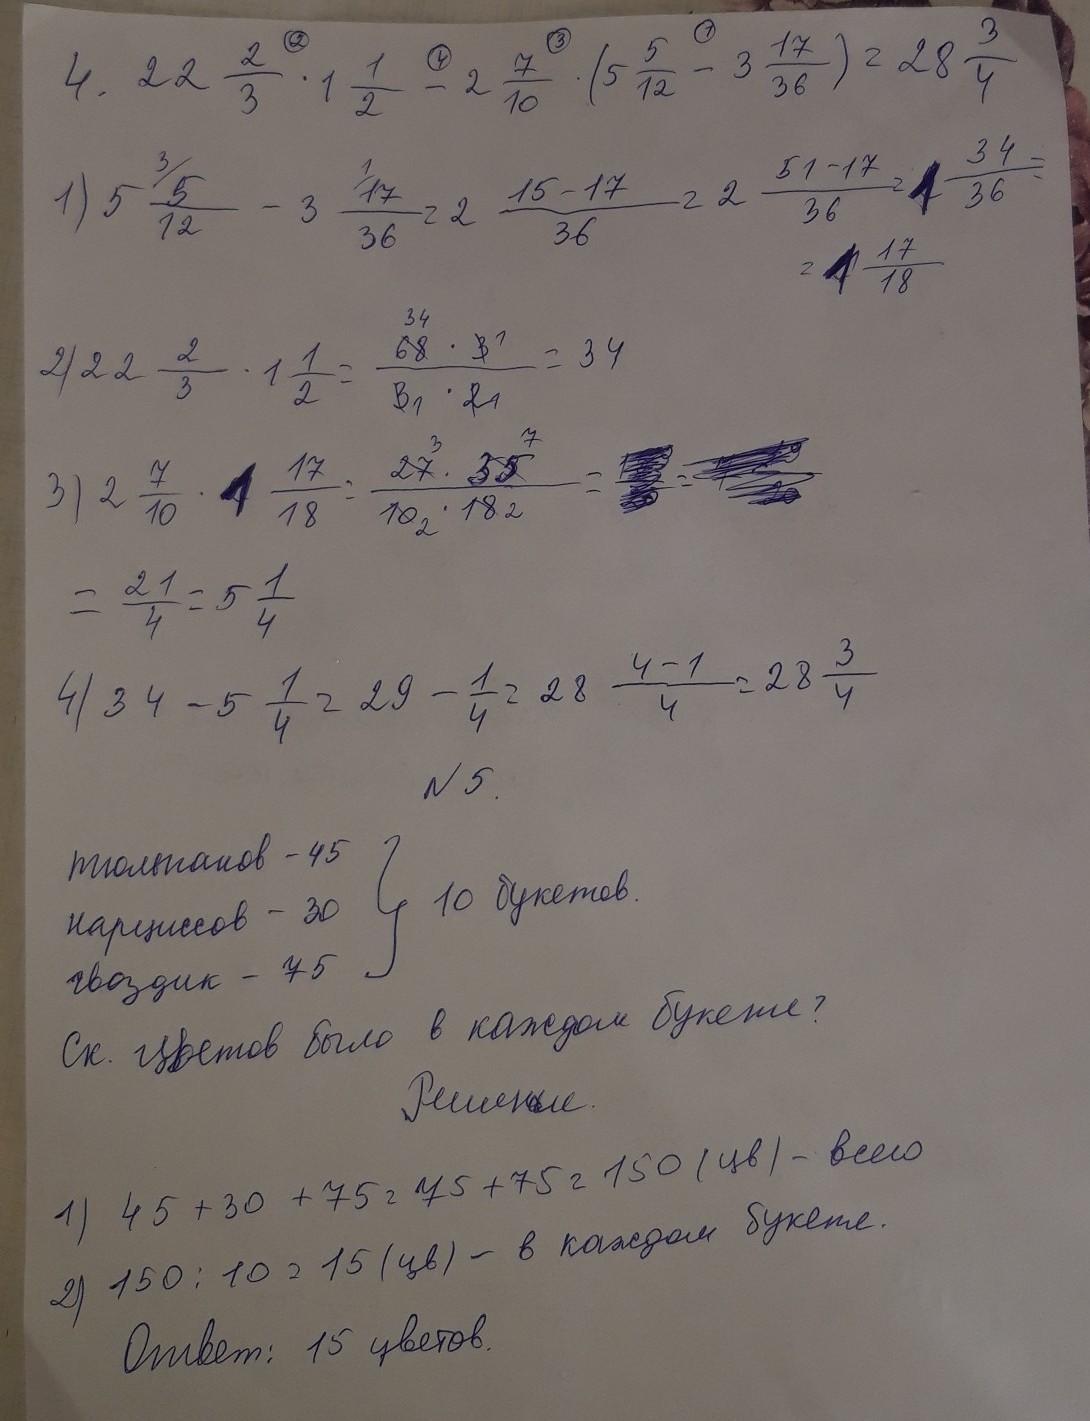 4. 22 2/3 · 1 1/2 - 2 7/10 · (5 5/12 - 3 17/36) = 28 3/4
1) 5 5/12 - 3 17/36 = 2 15-17/36 = 2 51-17/36 = 1 34/36 =
= 1 17/18
2) 22 2/3 · 1 1/2 = 68 · 3/3 · 2 = 34
3) 2 7/10 · 1 17/18 = 27 · 35/10 · 18 =
= 21/4 = 5 1/4
4) 34 - 5 1/4 = 29 - 1/4 = 28 4-1/4 = 28 3/4
N 5.
тюльпанов - 45
нарциссов - 30 } 10 букетов.
гвоздик - 75
Ск. цветов было в каждом букете?
Решение.
1) 45 + 30 + 75 = 75 + 75 = 150 (цв) - всего
2) 150 : 10 = 15 (цв) - в каждом букете.
Ответ: 15 цветов.